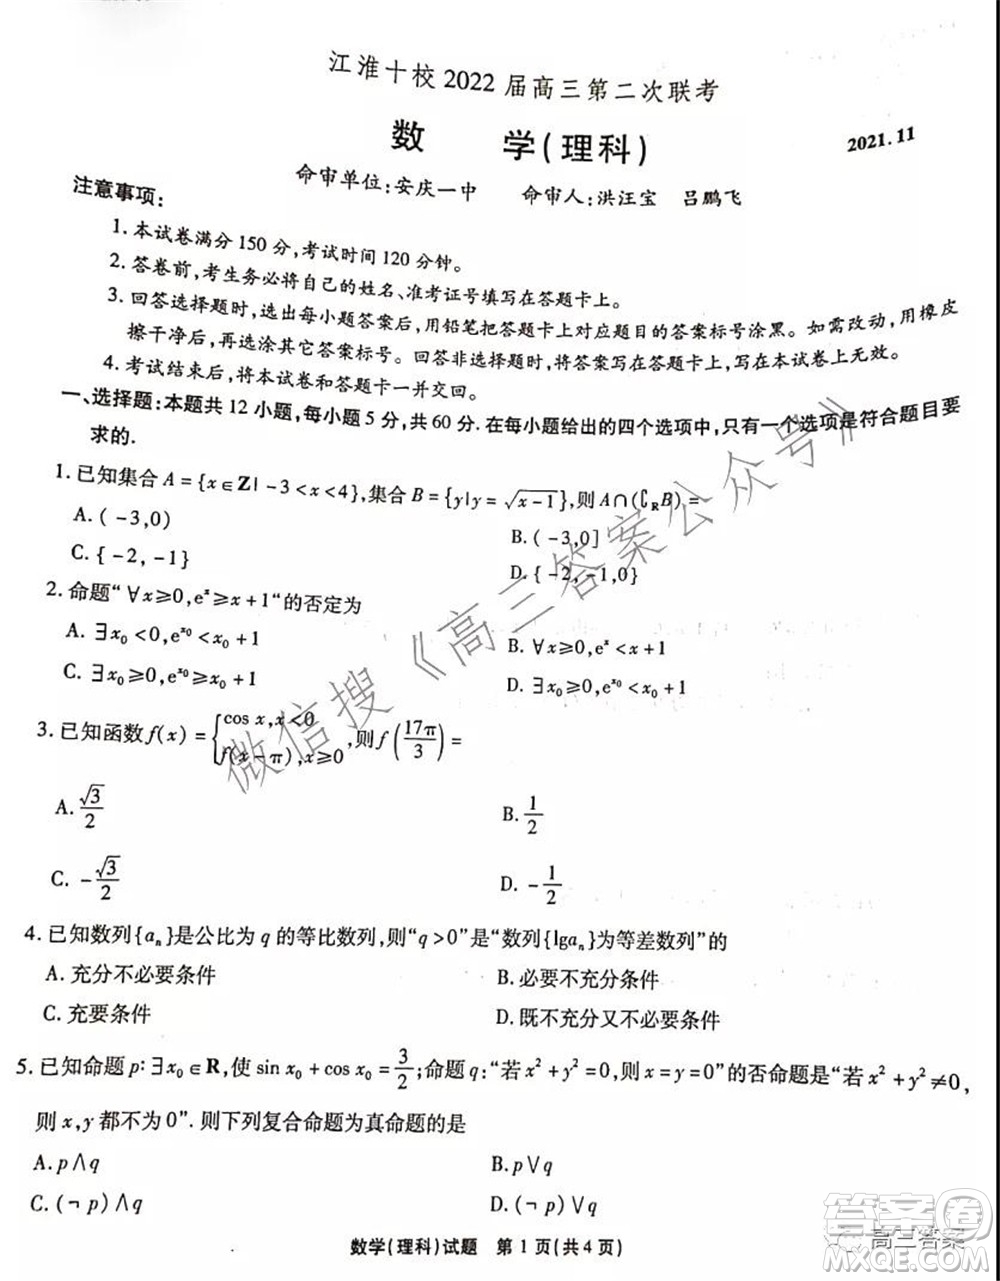 江淮十校2022届高三第二次联考
数 学(理科)
2021.11
命审单位:安庆一中 命审人:洪汪宝 吕鹏飞
注意事项:
1.本试卷满分150分,考试时间120分钟。
2.答卷前,考生务必将自己的姓名、准考证号填写在答题卡上。
3.回答选择题时,选出每小题答案后,用铅笔把答题卡上对应题目的答案标号涂黑。如需改动,用橡皮
擦干净后,再选涂其它答案标号。回答非选择题时,将答案写在答题卡上,写在本试卷上无效。
4.考试结束后,将本试卷和答题卡一并交回。
一、选择题:本题共12小题,每小题5分,共60分.在每小题给出的四个选项中,只有一个选项是符合题目要
求的.
1.已知集合A={x∈Z|-3<x<4},集合B={y|y=√(x-1)},则A∩(∁_R B)=
A.(-3,0) B.(-3,0]
C.{-2,-1} D.{-2,-1,0}
2.命题“∀x≥0,e^x≥x+1”的否定为
A.∃x₀<0,e^(x₀)<x₀+1 B.∀x≥0,e^x<x+1
C.∃x₀≥0,e^(x₀)≥x₀+1 D.∃x₀≥0,e^(x₀)<x₀+1
3.已知函数f(x)={cos x,x<0
f(x-π),x≥0,则f(17π/3)=
A.√3/2 B.1/2
C.-√3/2 D.-1/2
4.已知数列{aₙ}是公比为q的等比数列,则“q>0”是“数列{lgaₙ}为等差数列”的
A.充分不必要条件 B.必要不充分条件
C.充要条件 D.既不充分又不必要条件
5.已知命题p:∃x₀∈R,使sin x₀+cos x₀=3/2;命题q:“若x²+y²=0,则x=y=0”的否命题是“若x²+y²≠0,
则x,y都不为0”.则下列复合命题为真命题的是
A.p∧q B.p∨q
C.(¬p)∧q D.(¬p)∨q
数学(理科)试题 第1页(共4页)
微信搜《高三答案公众号》
答案圈
高三答案